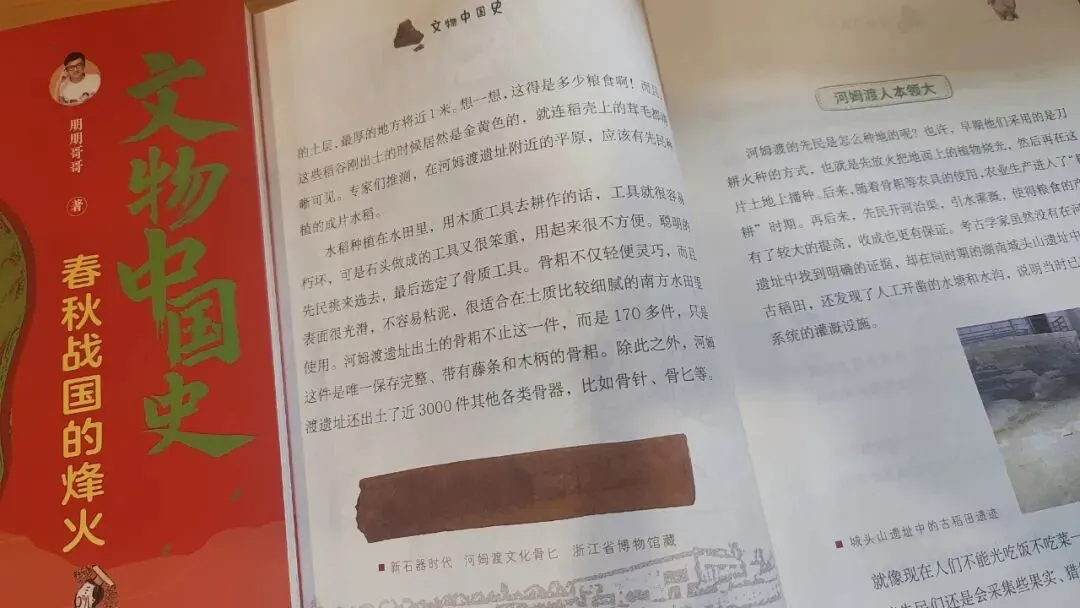 朋朋哥哥 著
文物中国史
春秋战国的烽火
文物中国史
的土层，最厚的地方将近1米。想一想，这得是多少粮食啊！而且，
这些稻谷刚出土的时候居然是金黄色的，就连稻壳上的茸毛都
晰可见。专家们推测，在河姆渡遗址附近的平原，应该有先民种
植的成片水稻。
水稻种植在水田里，用木质工具去耕作的话，工具就很容易
朽坏，可是石头做成的工具又很笨重，用起来很不方便。聪明的
先民挑来选去，最后选定了骨质工具。骨耜不仅轻便灵巧，而且
表面很光滑，不容易粘泥，很适合在土质比较细腻的南方水田里
使用。河姆渡遗址出土的骨耜不止这一件，而是170多件，只是
这件是唯一保存完整、带有藤条和木柄的骨耜。除此之外，河姆
渡遗址还出土了近3000件其他各类骨器，比如骨针、骨匕等。
■ 新石器时代 河姆渡文化骨匕 浙江省博物馆藏
河姆渡人本领大
河姆渡的先民是怎么种地的呢？也许，早期他们采用的是刀
耕火种的方式，也就是先放火把地面上的植物烧光，然后再在这
片土地上播种。后来，随着骨耜等农具的使用，农业生产进入了“
耕”时期。再后来，先民开河治渠，引水灌溉，使得粮食的产
有了较大的提高，收成也更有保证。考古学家虽然没有在河
遗址中找到明确的证据，却在同时期的湖南城头山遗址中
古稻田，还发现了人工开凿的水塘和水沟，说明当时已
系统的灌溉设施。
■ 城头山遗址中的古稻田遗迹
就像现在人们不能光吃饭不吃菜一
民们还是会采集些果实、猎